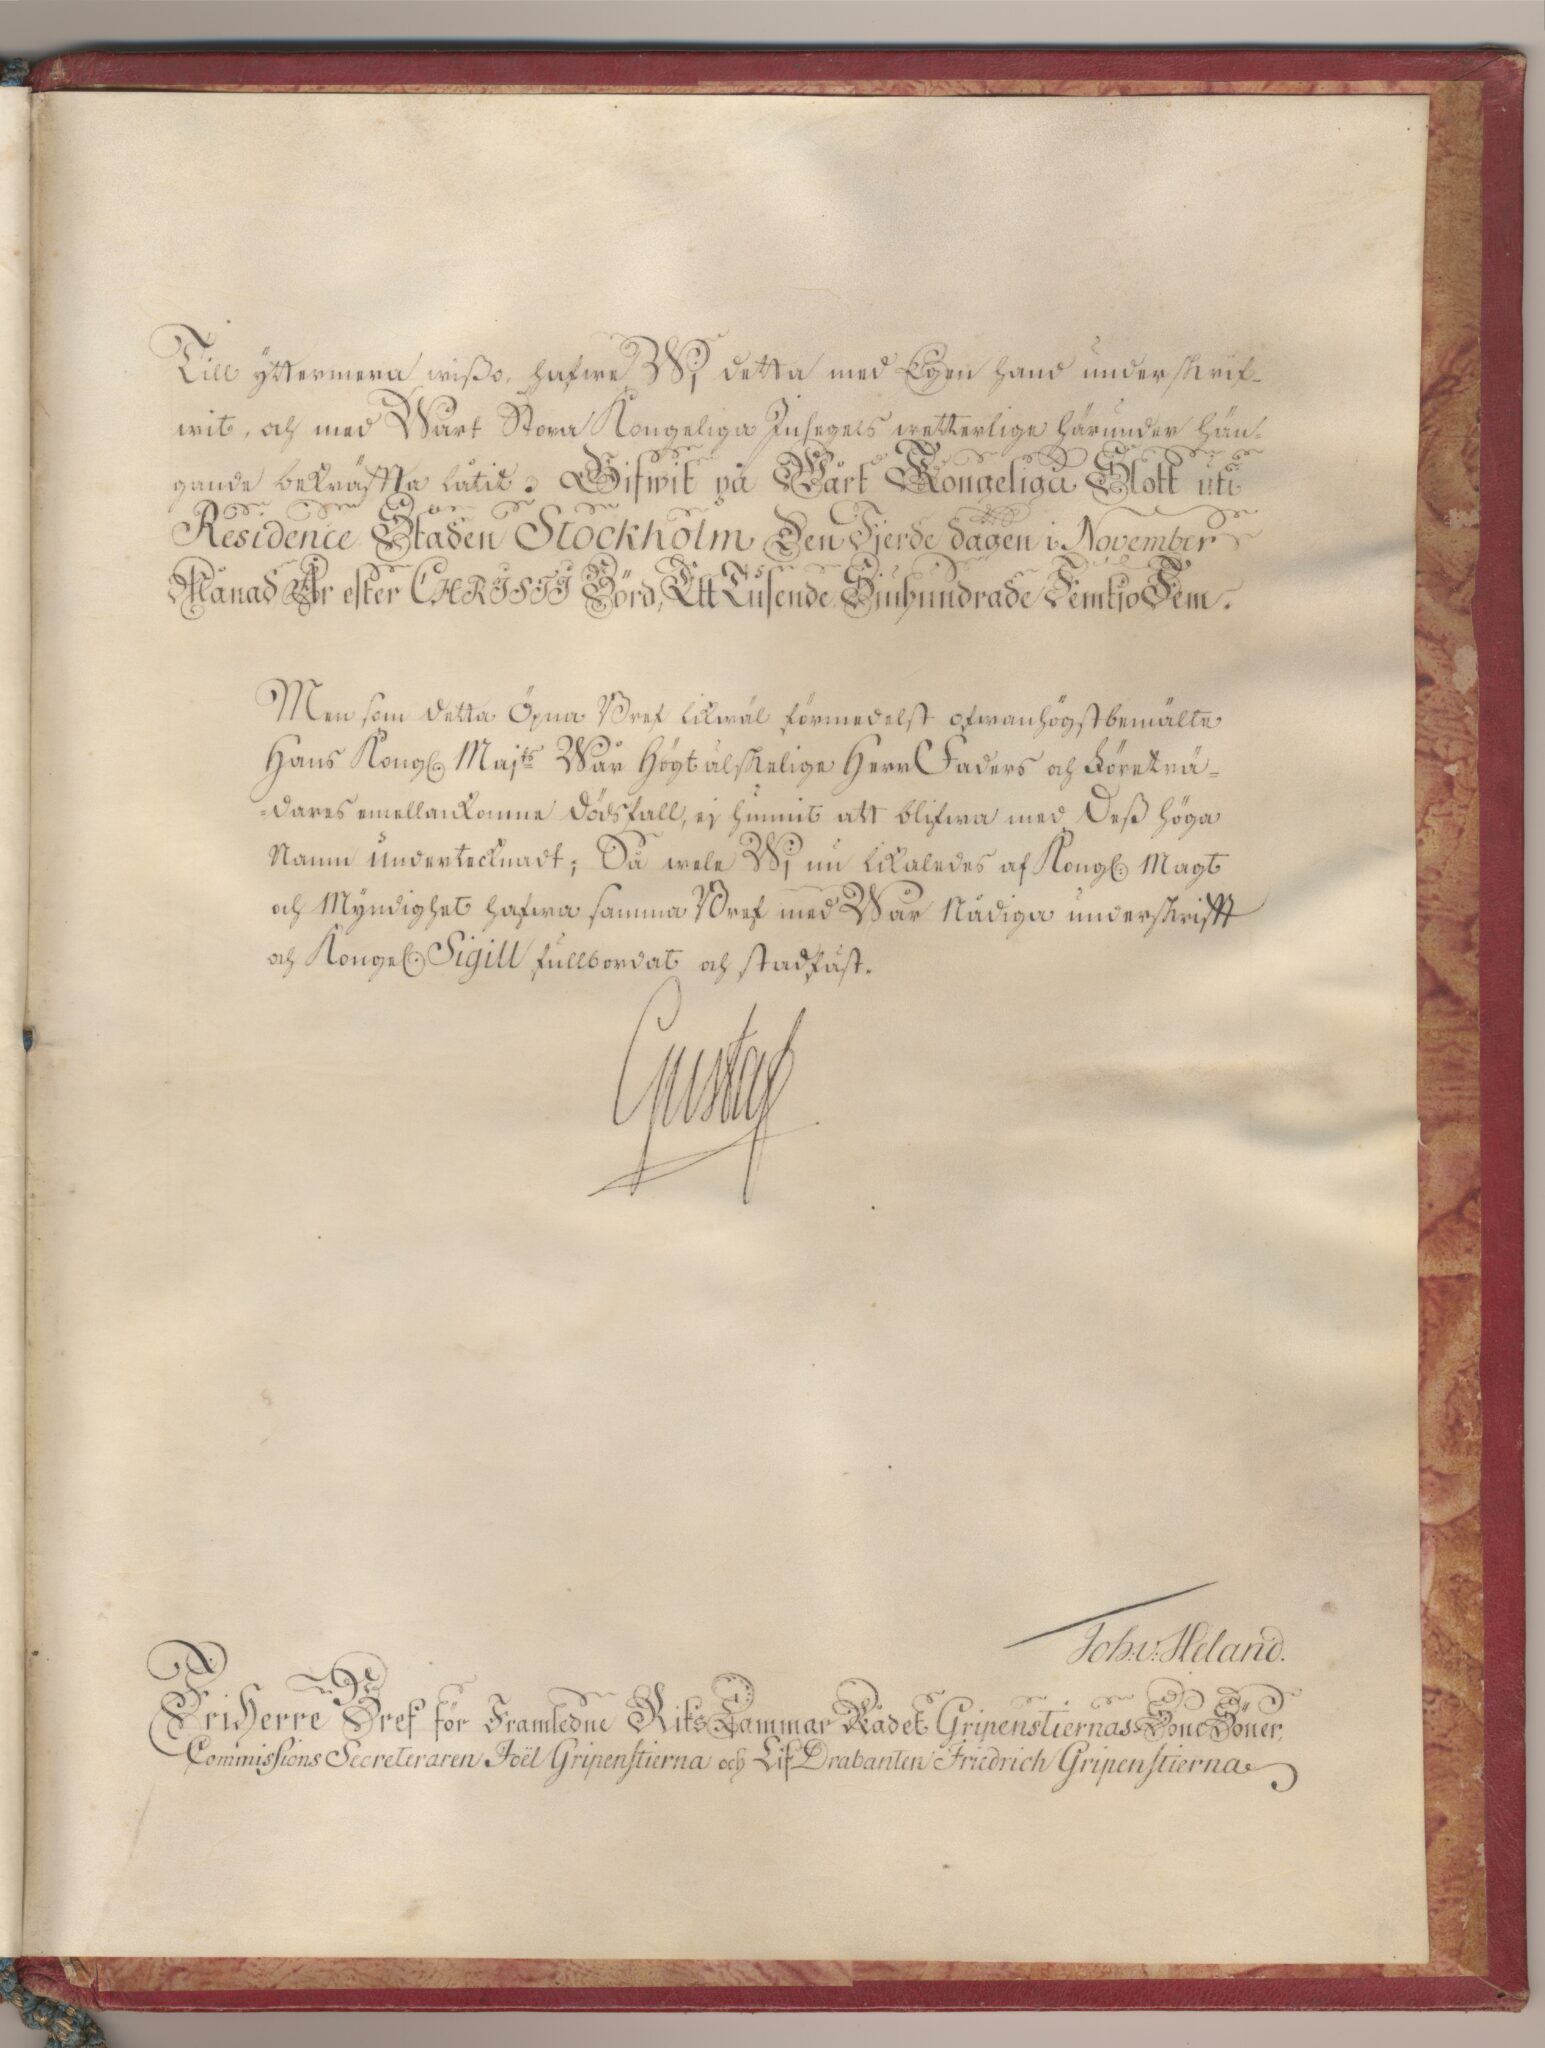 Till yttermera wißo, hafwe Wi detta med Egen hand underskrif-
wit, och med Wart Stora Kongeliga Insegels wetterlige härunder hän-
gande bekräffta låtit. Gifwit på Wårt Kongeliga Slott uti
Residence Staden Stockholm Den Fjerde dagen i November
Månad År efter CHRISTI Börd, Ett Tusende Sjuhundrade Femtjo Fem.
Men som detta Öpna Bref likwäl förmedelst ofwanhögstbemälte
Hans Kongl. Maj:ts Wår Högt älskelige Herr Faders och Företrä-
=dares emellankomne dödsfall, ej hunnit att blifwa med Deß höga
Namn undertecknadt; Så wele Wi nu likaledes af Kongl. Magt
och Myndighet hafwa samma Bref med Wår Nådiga underskrifft
och Kongel. Sigill fullbordat och stadfäst.
Gustaf
Joh: v: Heland.
FriHerre Bref för Framledne Riks Cammar Rådet Gripenstiernas Sone Söner,
Commissions Secreteraren Joël Gripenstierna och Lif Drabanten Friedrich Gripenstierna